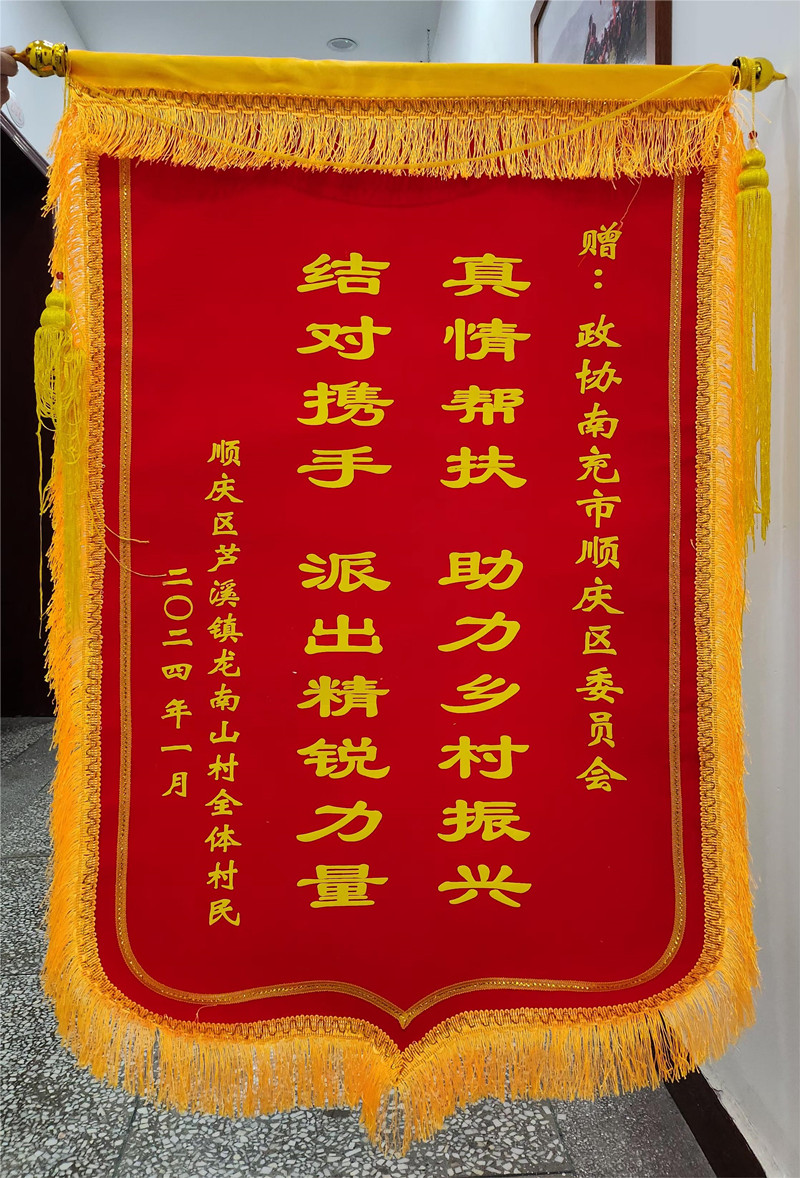 赠：政协南充市顺庆区委员会
真情帮扶 助力乡村振兴
结对携手 派出精锐力量
顺庆区芦溪镇龙南山村全体村民
二〇二四年一月